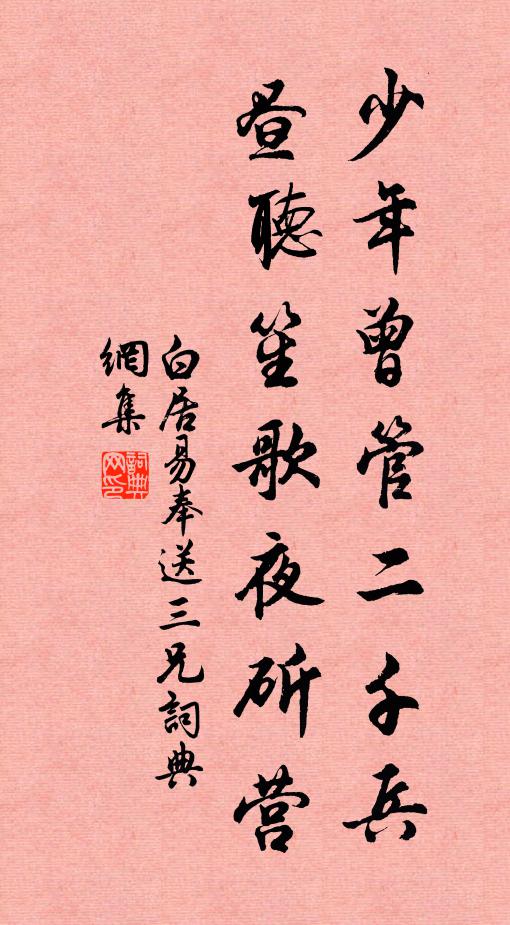 少年曾管二千兵
昼聽笙歌夜斫营
白居易奉送三兄詞典
網集
詞典
网印